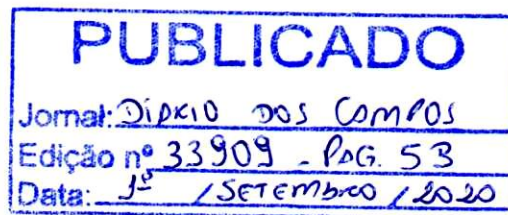 PUBLICADO
Jornal: DIÁRIO DOS CAMPOS
Edição nº 33909 - PÁG. 5B
Data: 1º / SETEMBRO / 2020